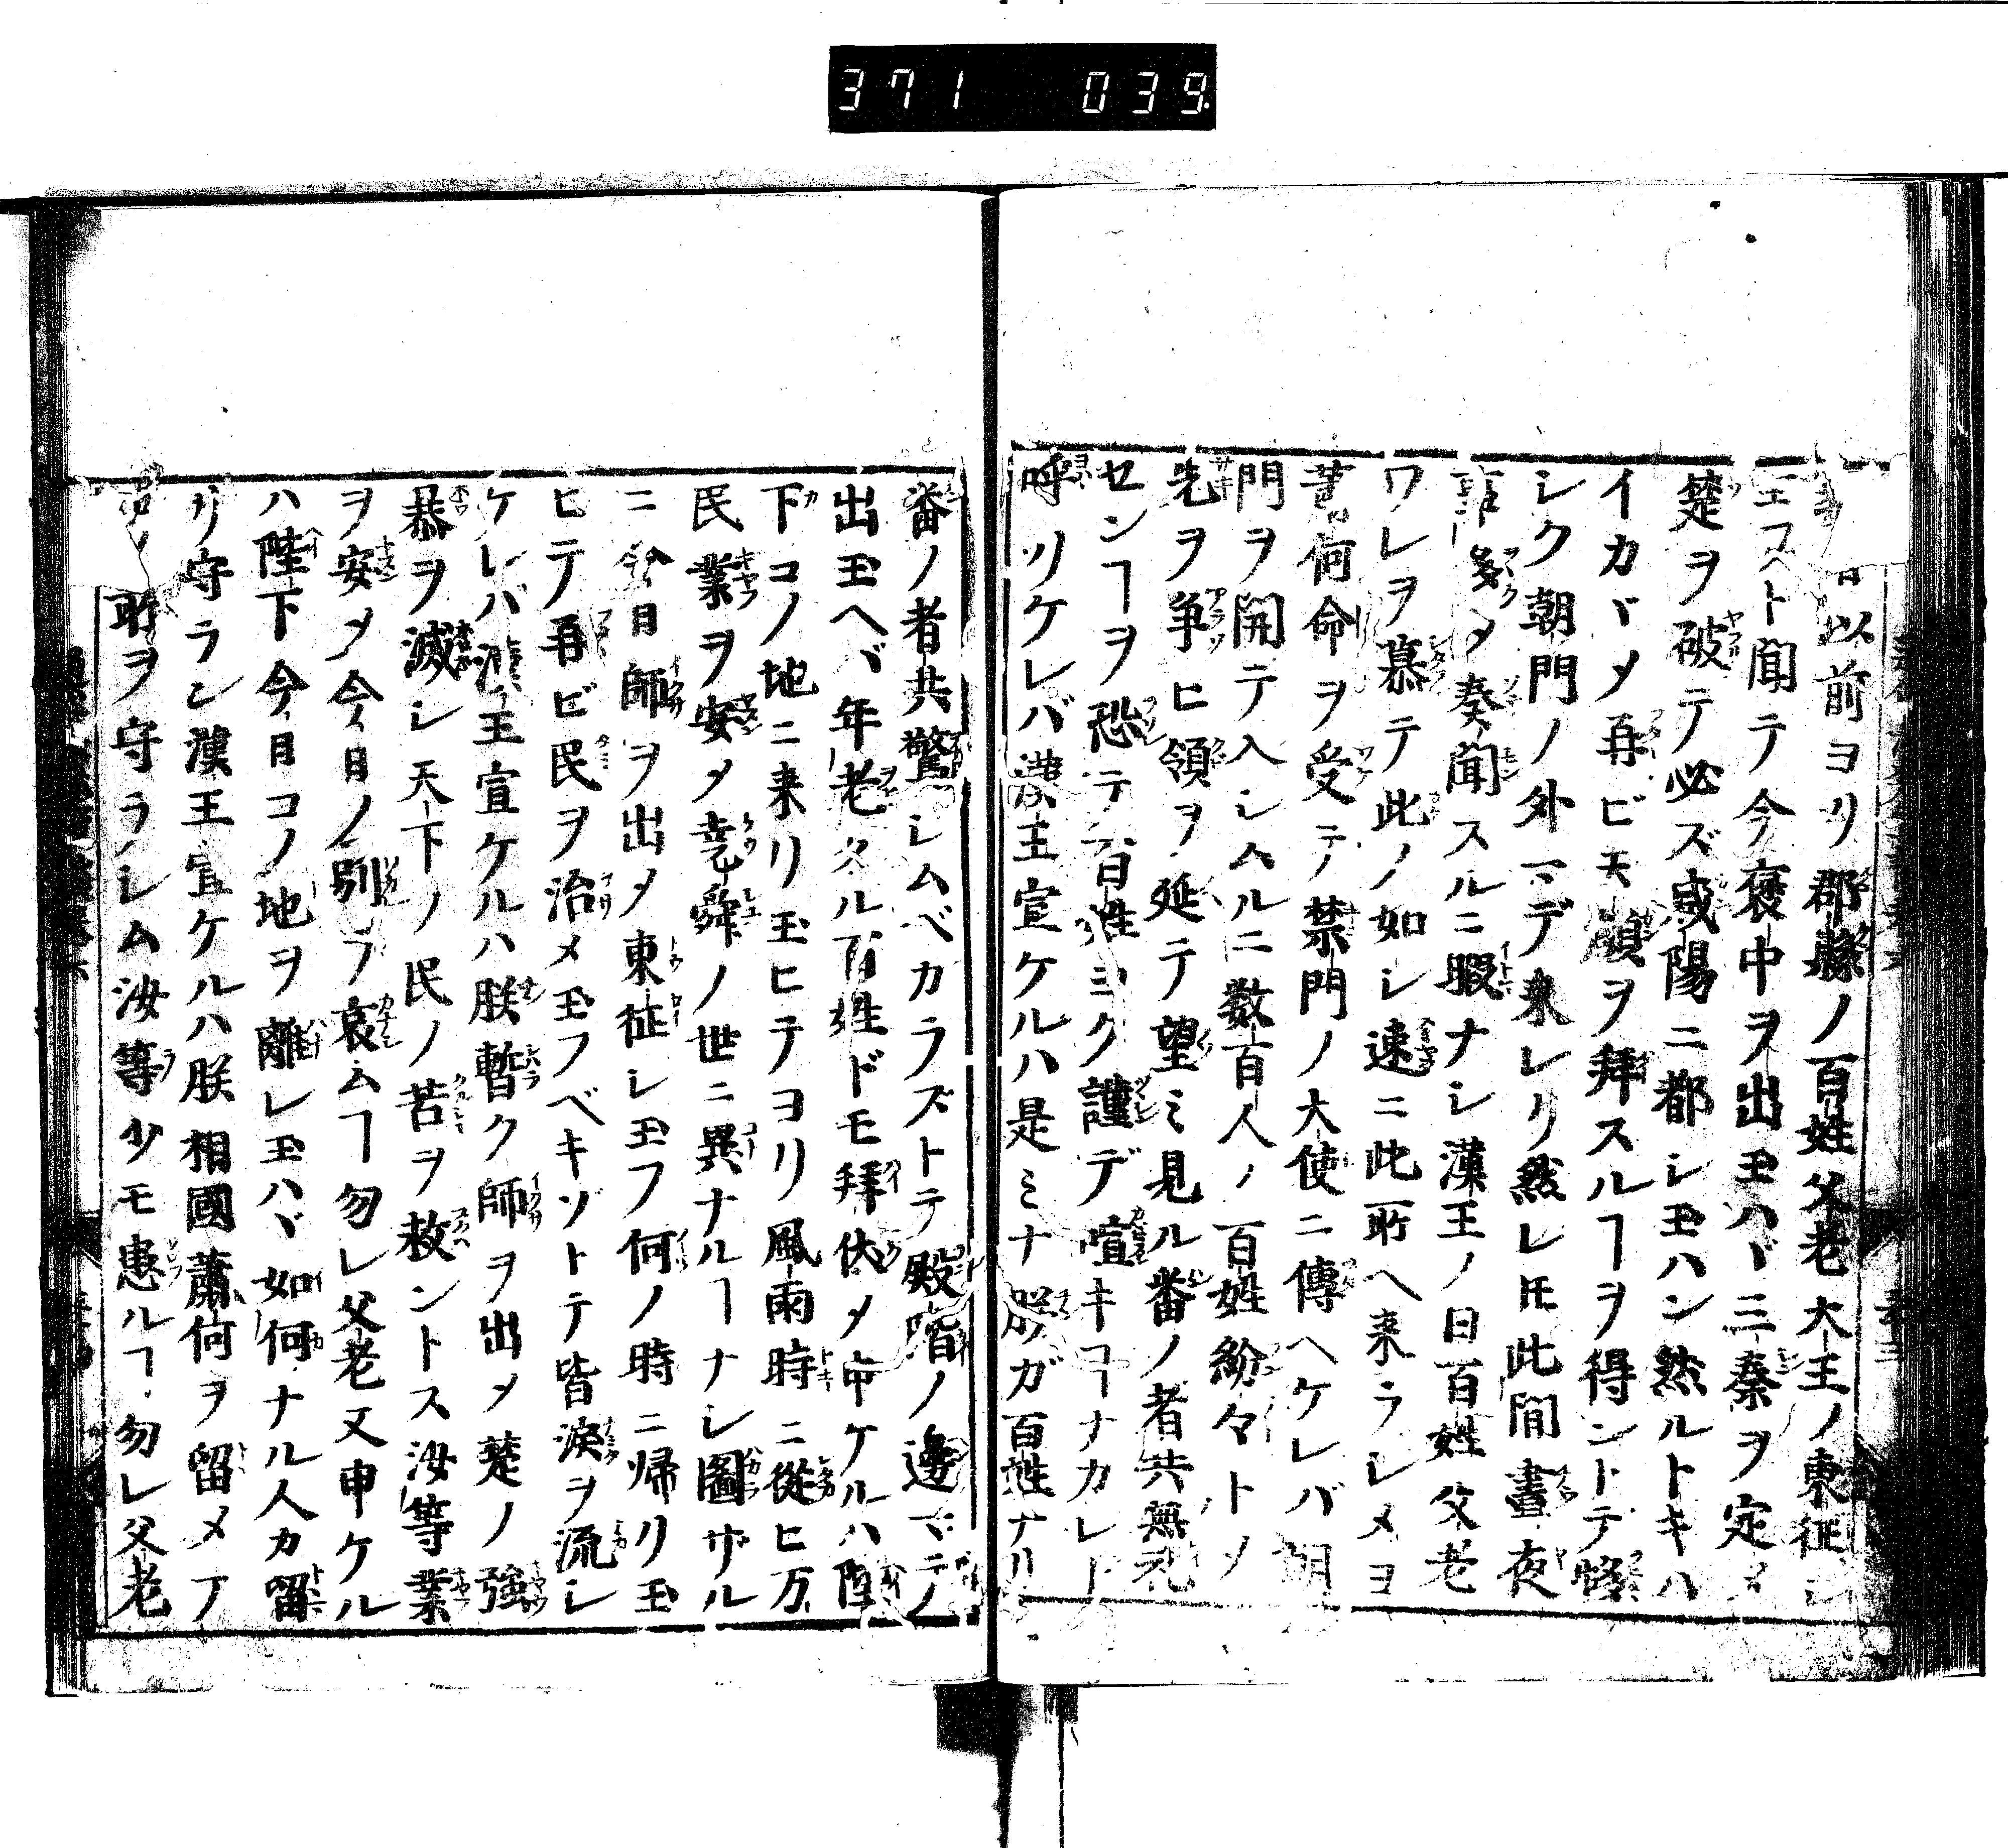 371 039
日以前ヨリ郡縣ノ百姓父老大王ノ東征シ
玉フト聞テ今褒中ヲ出玉ハヾ三秦ヲ定メ
楚ヲ破テ必ズ咸陽ニ都シ玉ハン然ルトキハ
イカヾメ再ビ天顔ヲ拜スルヿヲ得ントテ
シク朝門ノ外マデ来レリ然レ𪜈此間晝夜
事多メ奏聞スルニ暇ナシ漢王ノ曰百姓父老
ワレヲ慕テ此ノ如シ速ニ此所ヘ来ラシメヨ
蕭何命ヲ受テ禁門ノ大使ニ傳ヘケレバ朝
門ヲ開テ入シムルニ数百人ノ百姓紛々トメ
先ヲ争ヒ領ヲ延テ望ミ見ル番ノ者共無礼
センヿヲ恐テ百姓ヨク謹デ喧キヿナカレト
呼リケレバ漢王宣ケルハ是ミナ朕ガ百姓ナリ
番ノ者共驚シムベカラズトテ殿階ノ邊マテノ
出玉ヘバ年老タル百姓ドモ拜伏メ申ケルハ陛
下コノ地ニ来リ玉ヒテヨリ風雨時ニ從ヒ万
民業ヲ安メ尭舜ノ世ニ異ナルヿナシ圖ザル
ニ今日師ヲ出メ東征シ玉フ何ノ時ニ帰リ玉
ヒテ再ビ民ヲ治メ玉フベキゾトテ皆涙ヲ流シ
ケレバ漢王宣ケルハ朕暫ク師ヲ出メ楚ノ強
暴ヲ滅シ天下ノ民ノ苦ヲ救ントス汝等業
ヲ安メ今日ノ別ヲ哀ムヿ勿レ父老又申ケル
ハ陛下今日コノ地ヲ離レ玉ハヾ如何ナル人カ留
リ守ラン漢王宣ケルハ朕相國蕭何ヲ留メテ
此ノ所ヲ守ラシム汝等少モ患ルヿ勿レ父老